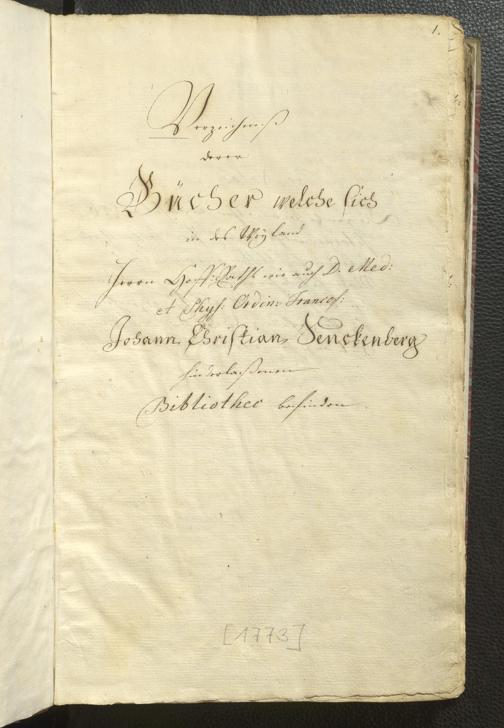 1.
Verzeichniß
derer
Bücher welche sich
in des Weyland
Herrn Hoff-Raths wie auch D. Med:
et Phys: Ordin: Francof:
Johann Christian Senckenberg
hinterlaßenen
Bibliothec befinden
[1773]